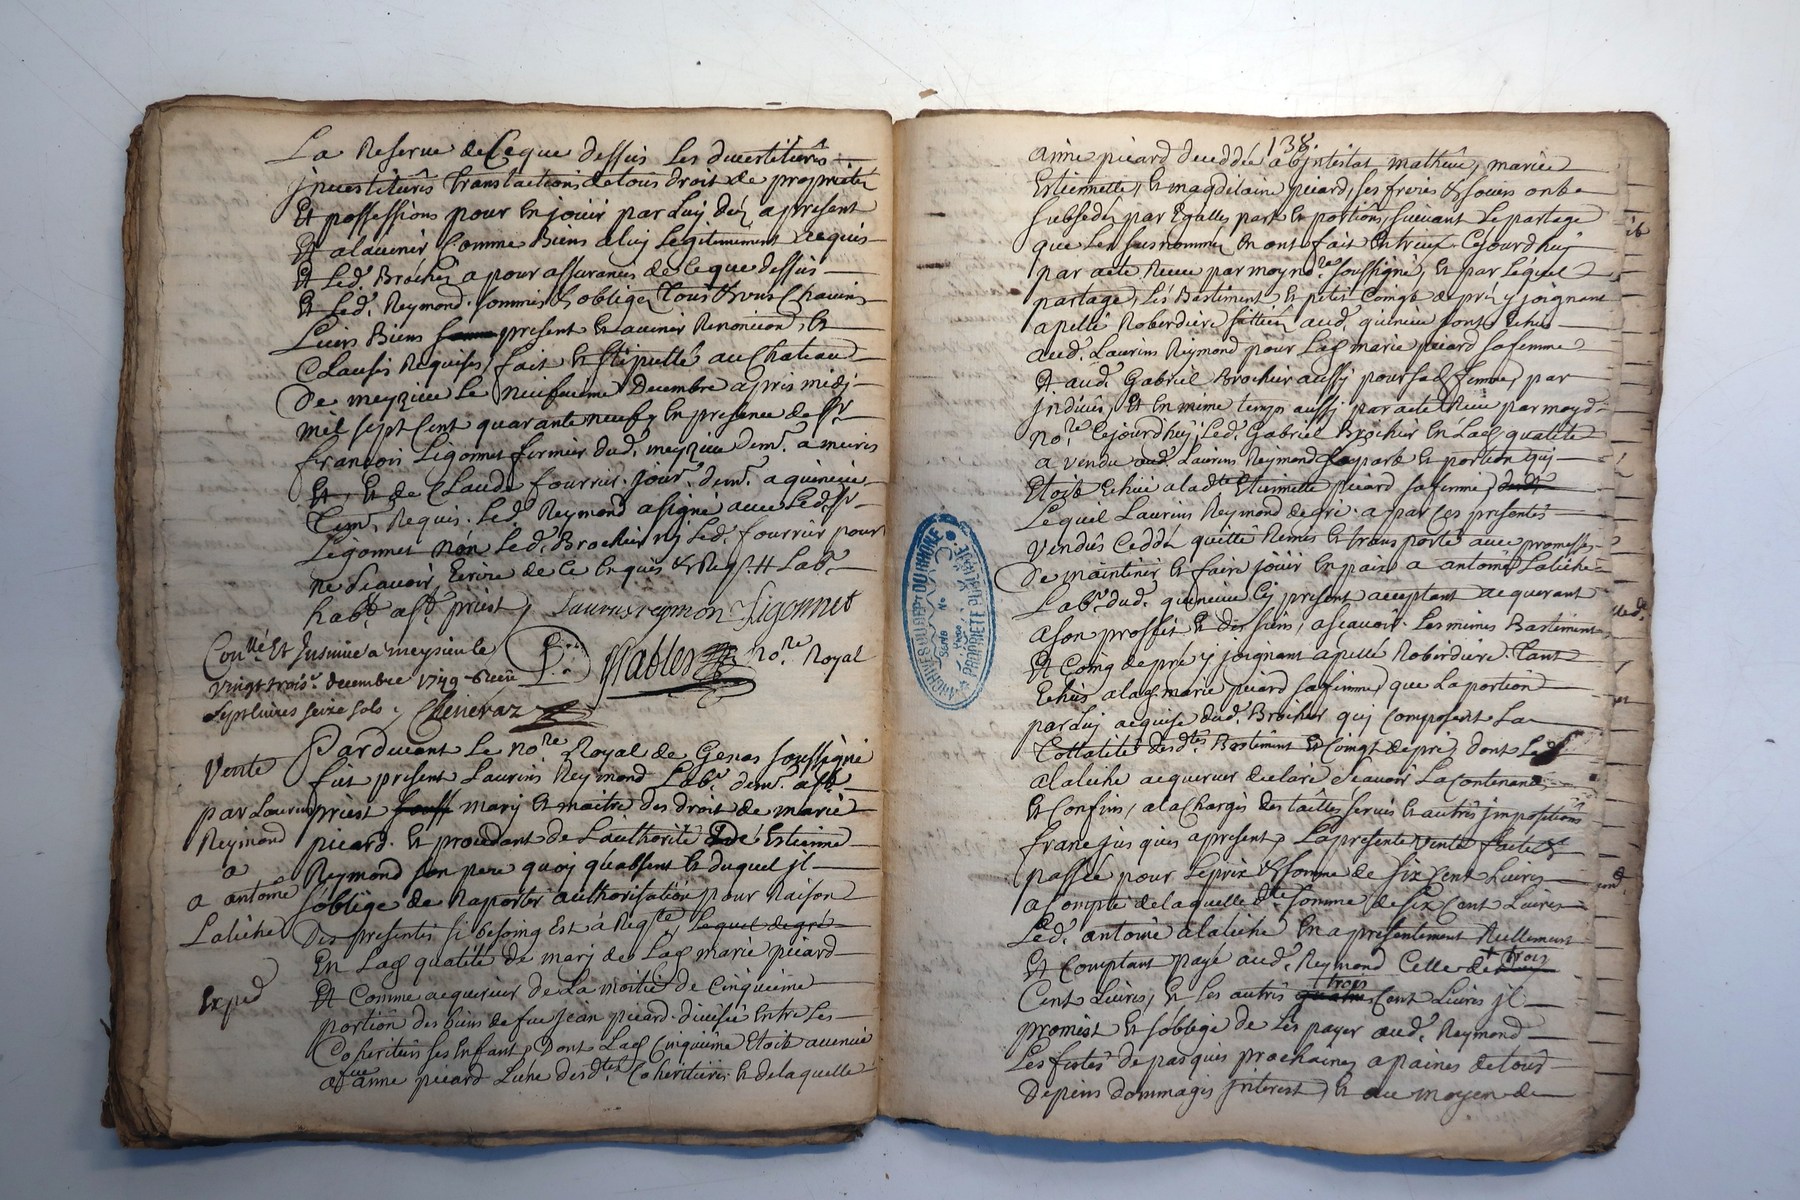 La Reserve de Ceque dessus Les divertitures
jnvestitures translactions detous droit de proprietez
Et possessions pour en jouir par Luy dez apresent
Et alavenir Comme Biens aluy Legitimement acquis
Et Led. Brochier a pour assurances de Ceque dessus
Et Led. Reymond sommis & obligez tous & uns Chacuns
Leurs Biens present et avenir Renoncion, et
Clauses Requises, fait et stipullé au Chateau
De meyzieu Le neufieme Decembre apres midj
mil sept Cent quarante neuf, en presence de Sr
francois Ligonnet fermier dud. meyzieu dem. a
Et de Claude fourrier jour. dem. a quincieu
tem. Requis. Led. Reymond a signé avec Led. Sr
Ligonnet non Led. Brochier nj Led. fourrier pour
ne sCavoir Ecrire de Ce enquis & Req. Lab.
hab. a St priest, Laurinsreymon Ligonnet
Conllé Et Jnsinué a meysieu le
vingt trois. decembre 1749 Receu
Septlivres seize sols. Cheneraz
P. Nables no.re Royal
Vente
par Laurins
Reymond
a
a antoine
Laliche
Exped
Pardevant Le no.re Royal de Genas soussigné
fut present Laurins Reymond Lab. dem. a St
priest marij et maitre des droit de marie
picard. et procedant de Lauthorité de Estienne
Reymond son pere quoy quabsent et duquel jl
s'oblige de Raporter authorisation pour Raison
Des presentes si besoing Est a Reqte, Lequel degré
En Lad qualité de marj de Lad marie picard
Et Comme acquereur de La moitié de Cinquieme
portion des biens de feu Jean picard divisée Entre Les
Coheritiers ses Enfant, Dont Lad Cinquieme Etoit avenue
a feue anne picard Lune desdtes Coheritieres et delaquelle
138.
anne picard deceddée abjntestat mathieu, marie
Estiennette, et magdelaine picard, ses freres & soeurs ont
succedez par Egalles part et portions, suivant Le partage
que Les susnommez en ont fait Entreux Cejourdhuy
par acte Receu par moy no.re soussigné, et par Lequel
partage, Les Bastiment et petit Coingt de pré y joignant
apellé Roberdiere scittuez aud. quincieu sont Echus
aud. Laurins Reymond pour Lad marie picard safemme
Et aud. Gabriel Brochier aussj pour sad femme, par
jndivis, Et en même temps aussj par acte Receu par moyd.
no.re Cejourdhuy, Led. Gabriel Brochier en Lad qualité
a vendu aud. Laurins Reymond Lapart et portion quj
Etoit Echue a ladte Etiennette picard safemme,
Lequel Laurins Reymond degré a par Ces presentes
vendus Ceddé quitté Remis et transporté avec promesses
De maintenir et faire jouir en paix a antoine Laliche
Lab. dud. quincieu Cy present acceptant acquerant
a son proffit et des siens, a sCavoir Les mêmes Bastiments
Et Coing depré y joignant apellé Roberdiere. Tant
Echus a lad marie picard safemme, que La portion
par Luy acquise dud. Brochier quj Composent La
tottalité desdtes Bastiment Et Coingt depré, dont Led
alaliche acquereur declare sCavoir La Contenance
Et Confins, a la Charges des tailles servis et autres jmpositions
franc jusques apresent, La presente vente faite &
passée pour Le prix & somme de six Cent Livres
a Compte delaquelle dte somme de six Cent Livres
Led. antoine alaliche en a presentement Reellement
Et Comptant payé aud. Reymond Celle de trois
Cent Livres, et Les autres trois Cent Livres jl
promest et soblige de Les payer aud. Reymond
Les festes de pasques prochaines a paines detous
Depens dommages jnterest, et au moyen de